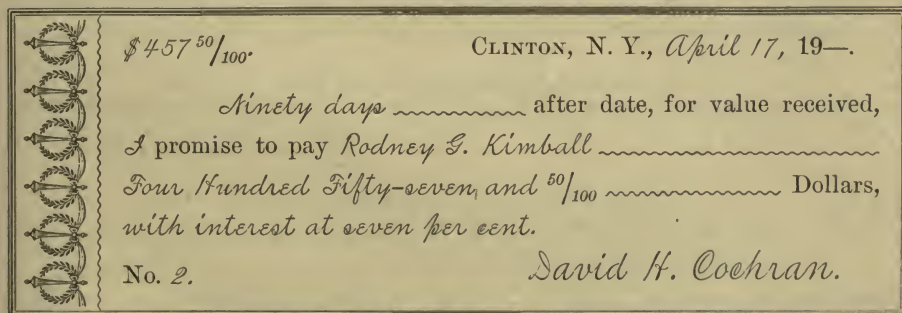 $457 50/100. CLINTON, N. Y., April 17, 19—.
Ninety days after date, for value received,
I promise to pay Rodney G. Kimball
Four Hundred Fifty-seven, and 50/100 Dollars,
with interest at seven per cent.
No. 2. David H. Cochran.